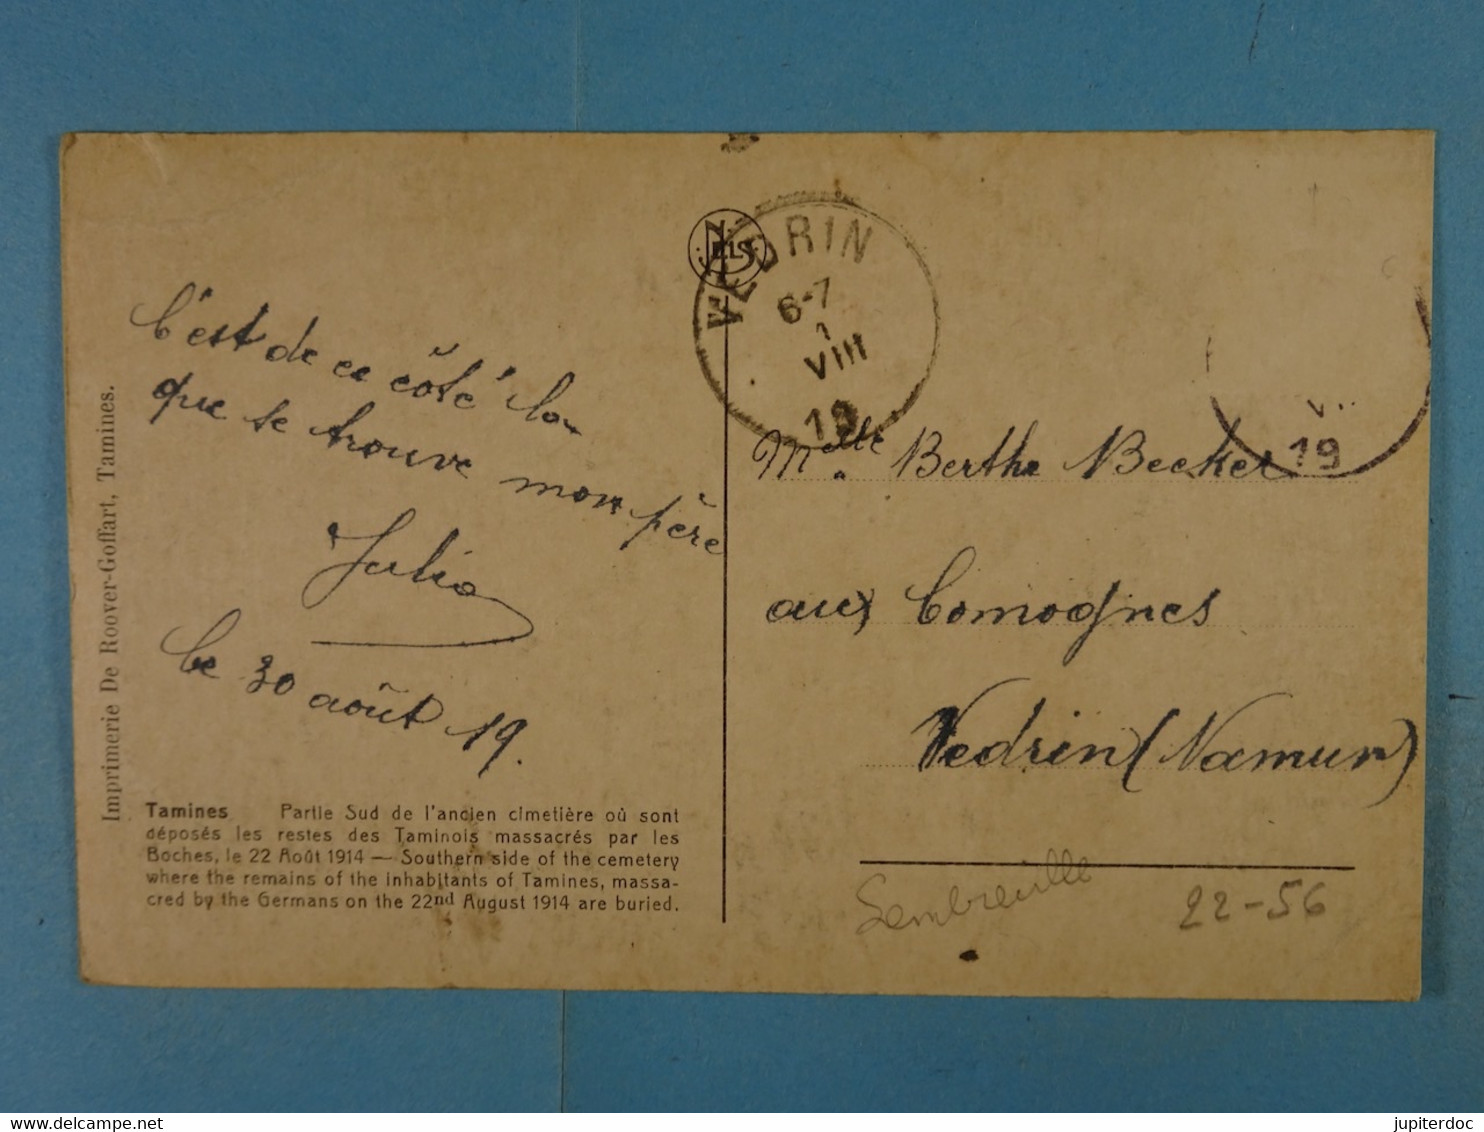 C'est de ce côté là
que se trouve mon père
Julia
le 30 août 19.
Imprimerie De Roover-Goffart, Tamines.
Tamines Partie Sud de l'ancien cimetière où sont
déposés les restes des Taminois massacrés par les
Boches, le 22 Août 1914 — Southern side of the cemetery
where the remains of the inhabitants of Tamines, massa-
cred by the Germans on the 22nd August 1914 are buried.
NELS
VEDRIN
6-7
1
VIII
19
V..
19
Melle Berthe Becker
aux Comognes
Vedrin (Namur)
22-56
jupiterdoc